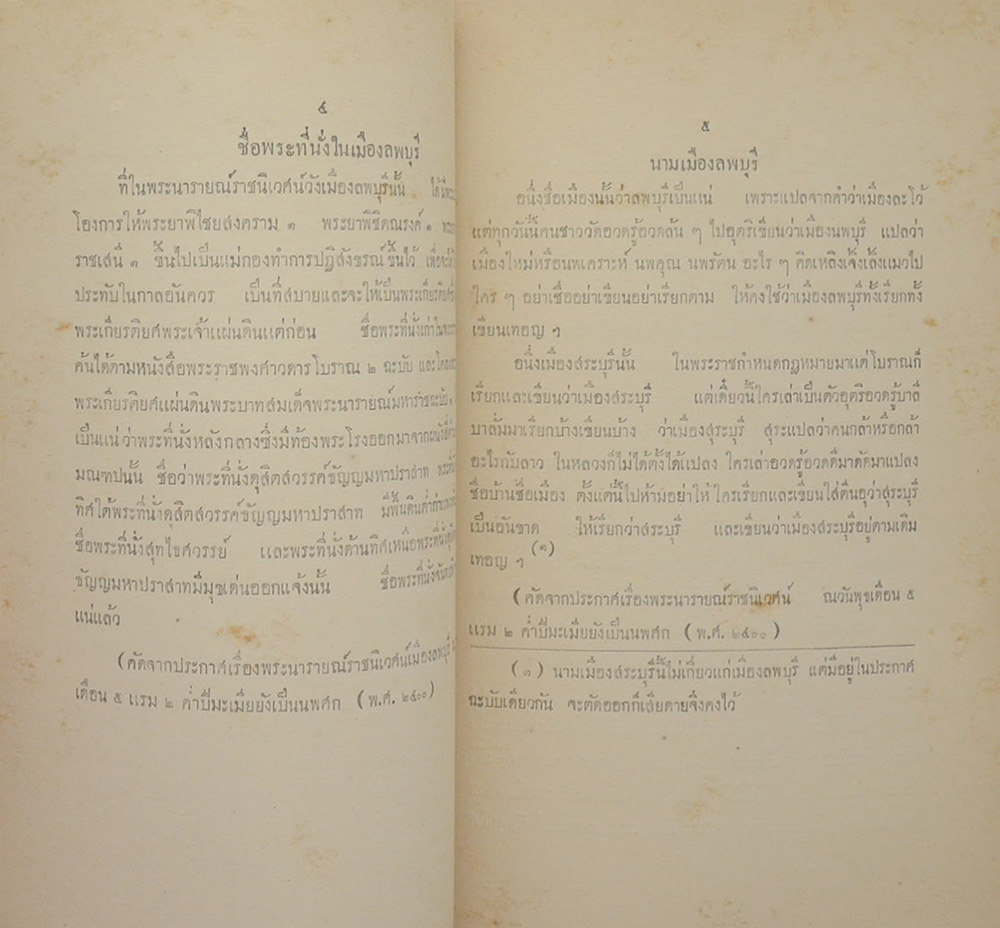 ๔
ชื่อพระที่นั่งในเมืองลพบุรี
ที่ในพระนารายณ์ราชนิเวศน์วังเมืองลพบุรีนั้น
โองการให้พระยาพิไชยสงคราม ๑ พระยาพิชิตณรงค์ ๑
ราชเสนี ๑ ขึ้นไปเป็นแม่กองทำการปฏิสังขรณ์ขึ้นไว้
ประทับในกาลอันควร เป็นที่สบายและจะให้เป็นพระเกียรติยศ
พระเกียรติยศพระเจ้าแผ่นดินแต่ก่อน ชื่อพระที่นั่งเก่า
ค้นได้ตามหนังสือพระราชพงศาวดารโบราณ ๒ ฉะบับ และ
พระเกียรติยศแผ่นดินพระบาทสมเด็จพระนารายณ์มหาราชฉะบับ ๑
เป็นแน่ว่าพระที่นั่งหลังกลางซึ่งมีท้องพระโรงออกมาจาก
มณฑปนั้น ชื่อว่าพระที่นั่งดุสิตสวรรค์ธัญญมหาปราสาท
ทิศใต้พระที่นั่งดุสิตสวรรค์ธัญญมหาปราสาท มีพื้นดินต่ำ
ชื่อพระที่นั่งสุทไชศวรรย์ และพระที่นั่งด้านทิศเหนือพระที่นั่ง
ธัญญมหาปราสาทมีมุขเด่นออกแจ้งนั้น ชื่อพระที่นั่ง
แน่แล้ว
(คัดจากประกาศเรื่องพระนารายณ์ราชนิเวศน์เมืองลพบุรี
เดือน ๕ แรม ๒ ค่ำปีมะเมียยังเป็นนพศก (พ.ศ. ๒๔๐๐)
๕
นามเมืองลพบุรี
อนึ่งชื่อเมืองนั้นว่าลพบุรีเป็นแน่ เพราะแปลจากคำว่าเมืองละโว้
แต่ทุกวันนี้คนชาววัดอวดรู้อวดล้น ๆ ไปอุตริเขียนว่าเมืองนพบุรี แปลว่า
เมืองใหม่หรือนพเคราะห์ นพคุณ นพรัตน อะไร ๆ คิดเหลิงเจิ้งเล้งแมวไป
ใคร ๆ อย่าเชื่ออย่าเขียนอย่าเรียกตาม ให้คงใช้ว่าเมืองลพบุรีทั้งเรียกทั้ง
เขียนเทอญ ฯ
อนึ่งเมืองสระบุรีนั้น ในพระราชกำหนดกฎหมายมาแต่โบราณก็
เรียกและเขียนว่าเมืองสระบุรี แต่เดี๋ยวนี้ใครเล่าเป็นตัวอุตริอวดรู้บาลี
บาลั่มมาเรียกบ้างเขียนบ้าง ว่าเมืองสุระบุรี สุระแปลว่าคนกล้าหรือกล้า
อะไรกับลาว ในหลวงก็ไม่ได้ตั้งได้แปลง ใครเล่าอวดรู้อวดดีมาดัดมาแปลง
ชื่อบ้านชื่อเมือง ตั้งแต่นี้ไปห้ามอย่าให้ใครเรียกและเขียนใส่ตีนอุว่าสุระบุรี
เป็นอันขาด ให้เรียกว่าสระบุรี และเขียนว่าเมืองสระบุรีอยู่ตามเดิม
เทอญ ฯ (๑)
(คัดจากประกาศเรื่องพระนารายณ์ราชนิเวศน์ ณวันพุธเดือน ๕
แรม ๒ ค่ำปีมะเมียยังเป็นนพศก (พ.ศ. ๒๔๐๐)
(๑) นามเมืองสระบุรีนี้ไม่เกี่ยวแก่เมืองลพบุรี แต่มีอยู่ในประกาศ
ฉะบับเดียวกัน จะตัดออกก็เสียดายจึงคงไว้